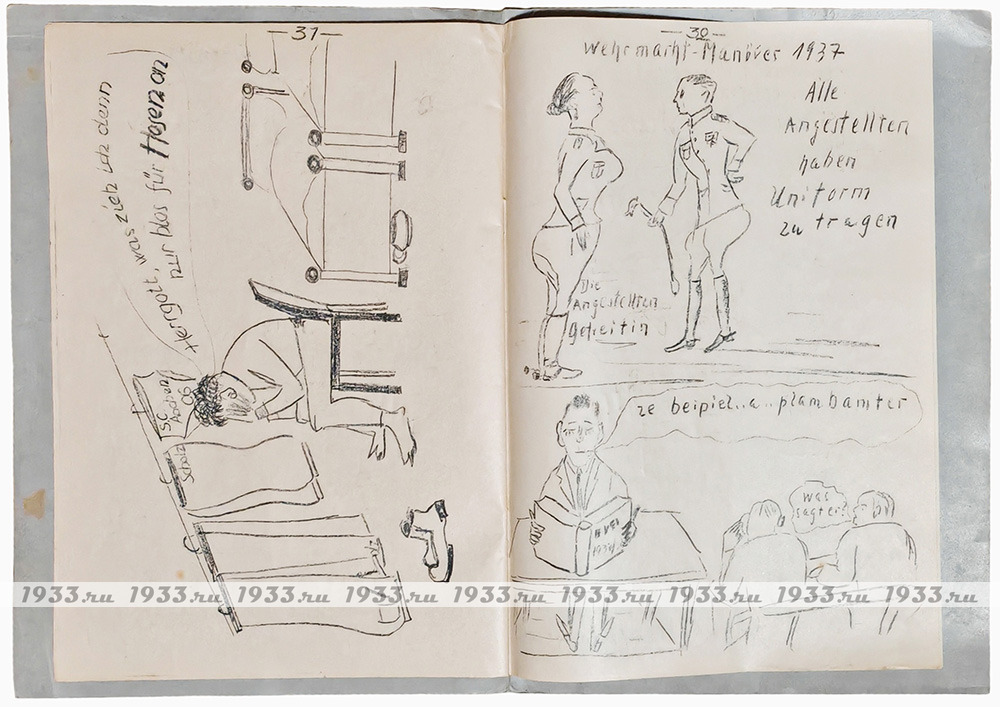 —31—
Herrgott, was zieh ich denn
nur blos für Hosen an
S.C.
Aachen
06
Scholz
—30—
Wehrmacht-Manöver 1937
Alle
Angestellten
haben
Uniform
zu tragen
Die
Angestellten
Gefreitin
ze beipiel..a..plambamter
was
sagter?
1937
1933.ru 1933.ru 1933.ru 1933.ru 1933.ru 1933.ru 1933.ru 1933.ru 1933.ru